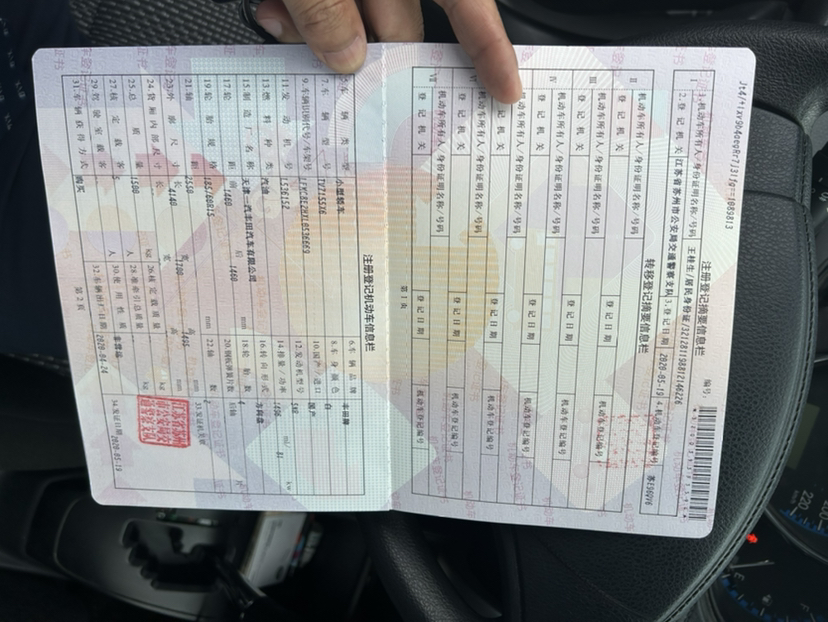 注册登记摘要信息栏
编号:
1.机动车所有人/身份证明名称/号码
2.登记机关 江苏省苏州市公安局交通警察支队 3.登记日期 2020-05-19 4.机动车登记编号
转移登记摘要信息栏
II 机动车所有人/身份证明名称/号码
登记机关 登记日期 机动车登记编号
III 机动车所有人/身份证明名称/号码
登记机关 登记日期 机动车登记编号
IV 机动车所有人/身份证明名称/号码
登记机关 登记日期 机动车登记编号
机动车所有人/身份证明名称/号码
记机关 登记日期 机动车登记编号
机动车所有人/身份证明名称/号码
登记机关 登记日期 机动车登记编号
VII 机动车所有人/身份证明名称/号码
登记机关 登记日期 机动车登记编号
第1页
注册登记机动车信息栏
5.车辆类型 小型轿车 6.车辆品牌 丰田牌
7.车辆型号 8.车身颜色 白
9.车辆识别代号/车架号 10.国产/进口 国产
11.发动机号 12.发动机型号
13.燃料种类 汽油 14.排量/功率 ml/ kw
15.制造厂名称 天津一汽丰田汽车有限公司 16.转向形式 方向盘
17.轮距 前 1460 后 1460 mm 18.轮胎数 4
19.轮胎规格 185/60R15 20.钢板弹簧片数 后轴
21.轴距 2550 mm 22.轴数 2
23.外廓尺寸 长 4140 宽 1700 高 mm 33.发证机关章
24.货厢内部尺寸 长 宽 高 mm
25.总质量 1500 kg 26.核定载质量 kg
27.核定载客 5 人 28.准牵引总质量 kg
29.驾驶室载客 人 30.使用性质
31.车辆获得方式 购买 32.车辆出厂日期 2020-04-24 34.发证日期 2020-05-19
第2页
220